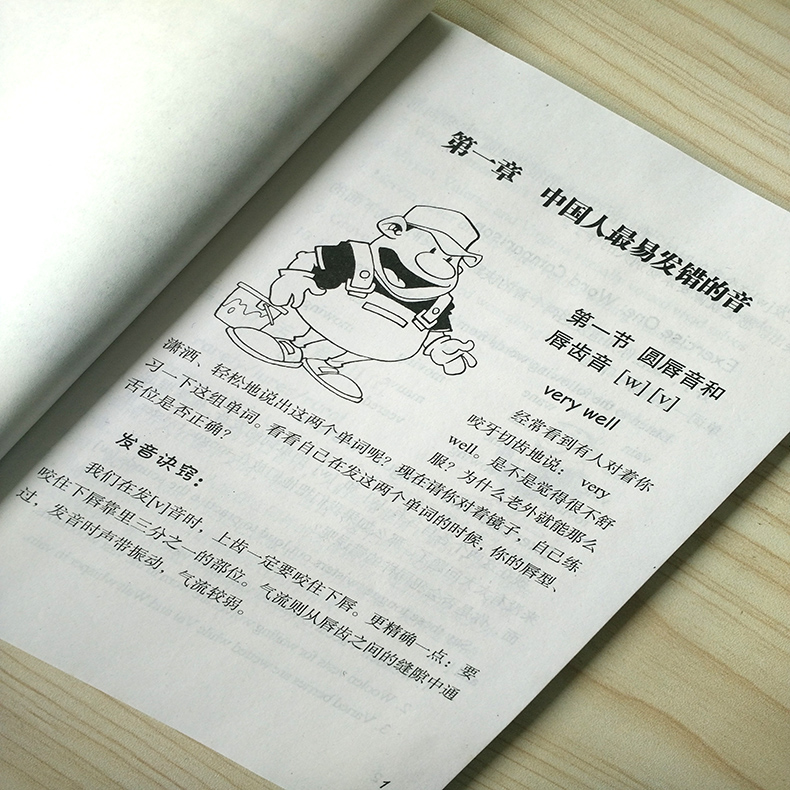 第一章 中国人最易发错的音
第一节 圆唇音和
唇齿音 [w] [v]
very well
经常看到有人对着你
咬牙切齿地说: very
well。是不是觉得很不舒
服?为什么老外就能那么
潇洒、轻松地说出这两个单词呢?现在请你对着镜子,自己练
习一下这组单词。看看自己在发这两个单词的时候,你的唇型、
舌位是否正确?
发音诀窍:
我们在发[v]音时,上齿一定要咬住下唇。更精确一点:要
咬住下唇靠里三分之一的部位。气流则从唇齿之间的缝隙中通
过,发音时声带振动,气流较弱。
1